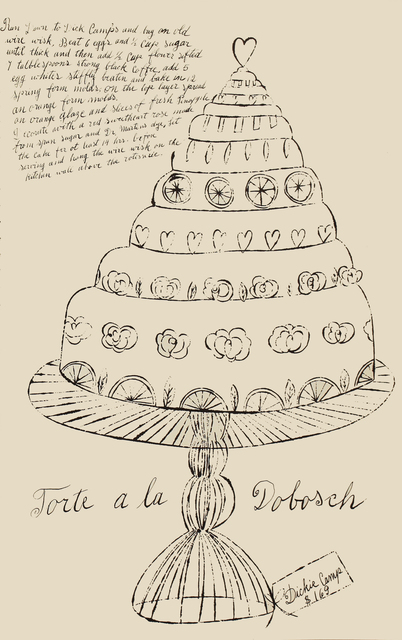 Run down to Dick Camp's and buy an old
wire wisk. Beat 6 eggs and ½ Cup sugar
until thick and then add ½ Cup flower sifted
7 tablespoons strong black Coffee, add 5
egg whites stiffly beaten and bake in 12
spring form molds. on the top layer spread
an orange form molds.
on orange glaze and slices of fresh Pineapple
Decorate with a red sweetheart rose made
from spun sugar and Dr. Martins dye, let
the Cake for at last 14 hrs. before
serving and hang the wire wisk on the
Kitchen wall above the rotisserie.
Torte a la Dobosch
Dickie Camp
$ 1.69